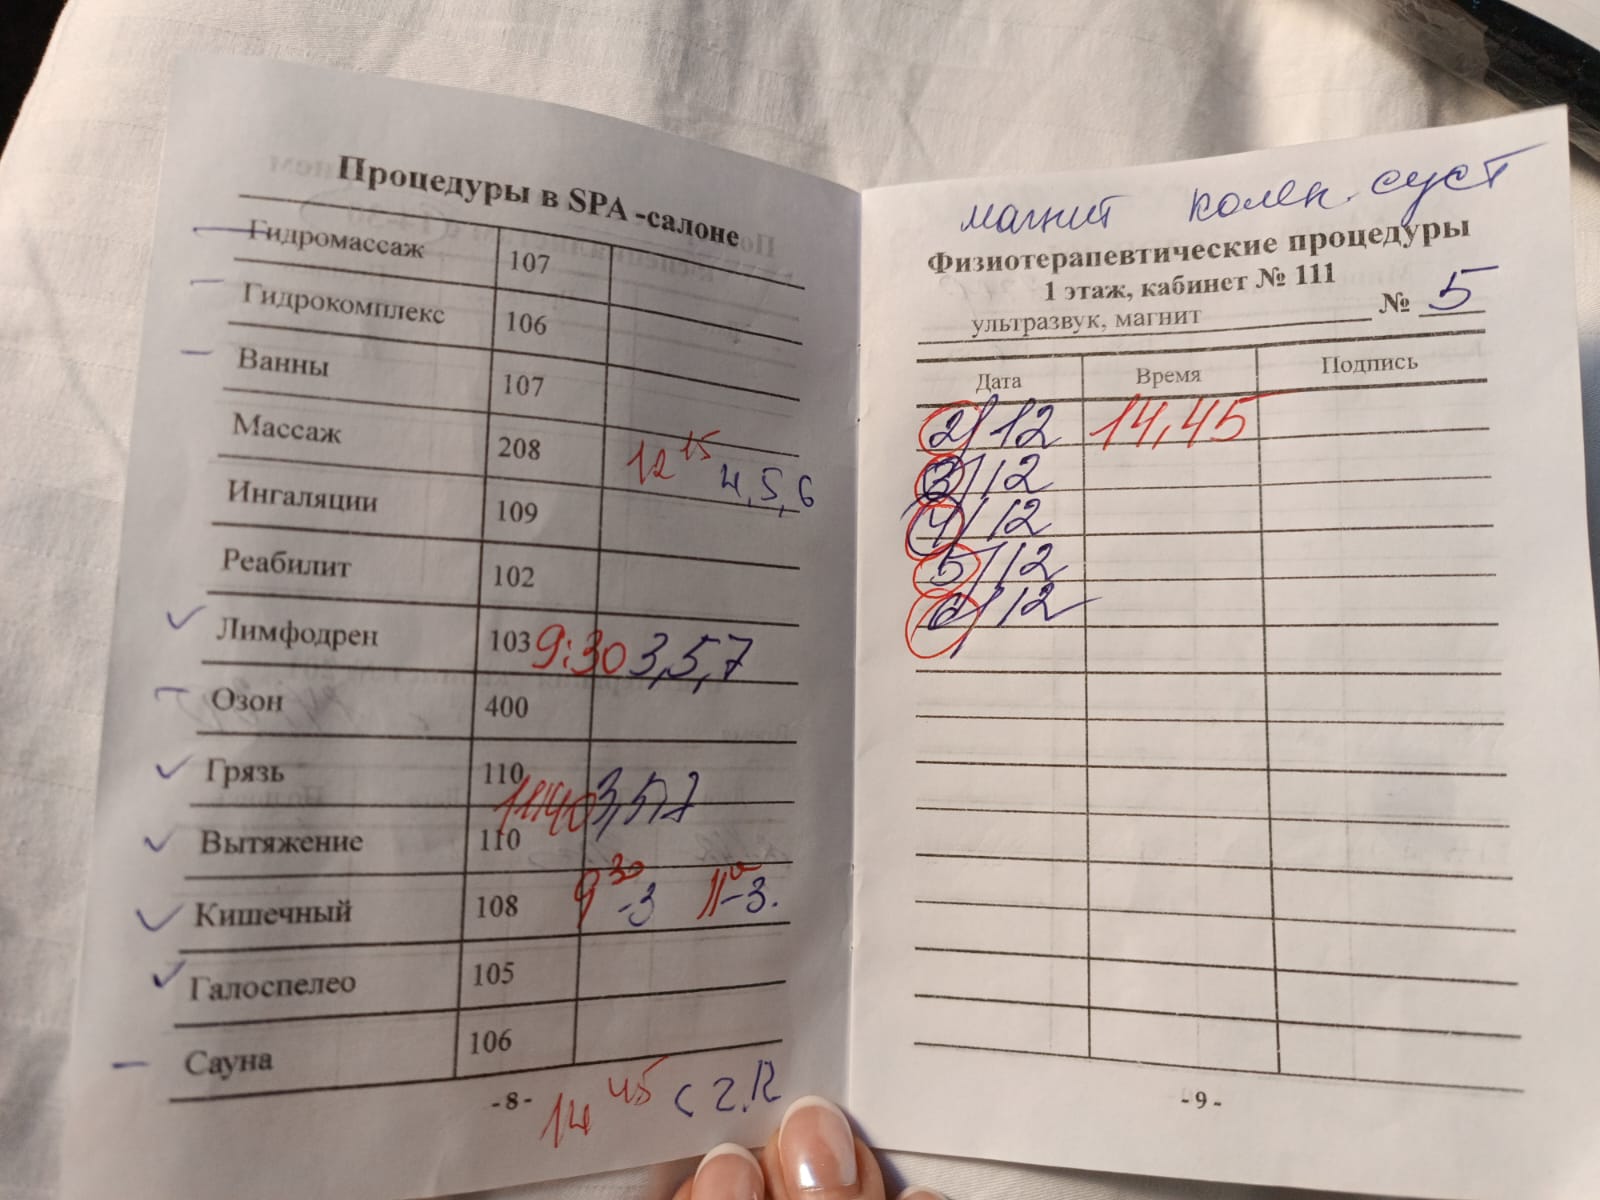 Процедуры в SPA -салоне
Гидромассаж 107
Гидрокомплекс 106
Ванны 107
Массаж 208 12 15 4, 5, 6
Ингаляции 109
Реабилит 102
Лимфодрен 103 9:30 3,5,7
Озон 400
Грязь 110 11:40 3,5,7
Вытяжение 110
Кишечный 108 9 30 -3 11 -3.
Галоспелео 105
Сауна 106
-8-
14 45 с 2.12
магнит колен. суст
Физиотерапевтические процедуры
1 этаж, кабинет № 111
ультразвук, магнит № 5
Дата Время Подпись
2/12 14,45
3/12
4/12
5/12
6/12
-9-